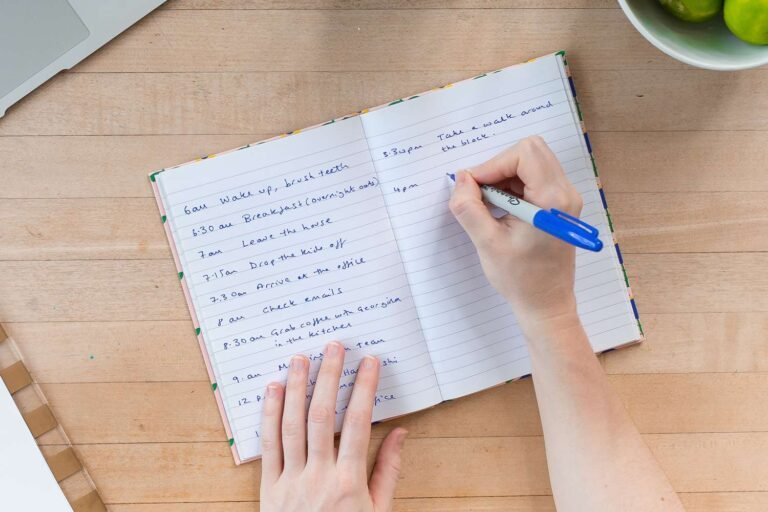 6am Wake up, brush teeth
6.30 am Breakfast (overnight oats)
7am Leave the house
7.15am Drop the kids off
7.30am Arrive at the office
8 am Check emails
8.30 am Grab coffee with Georgina
in the kitchen
9. am team
12
3.30pm Take a walk around
the block.
4pm